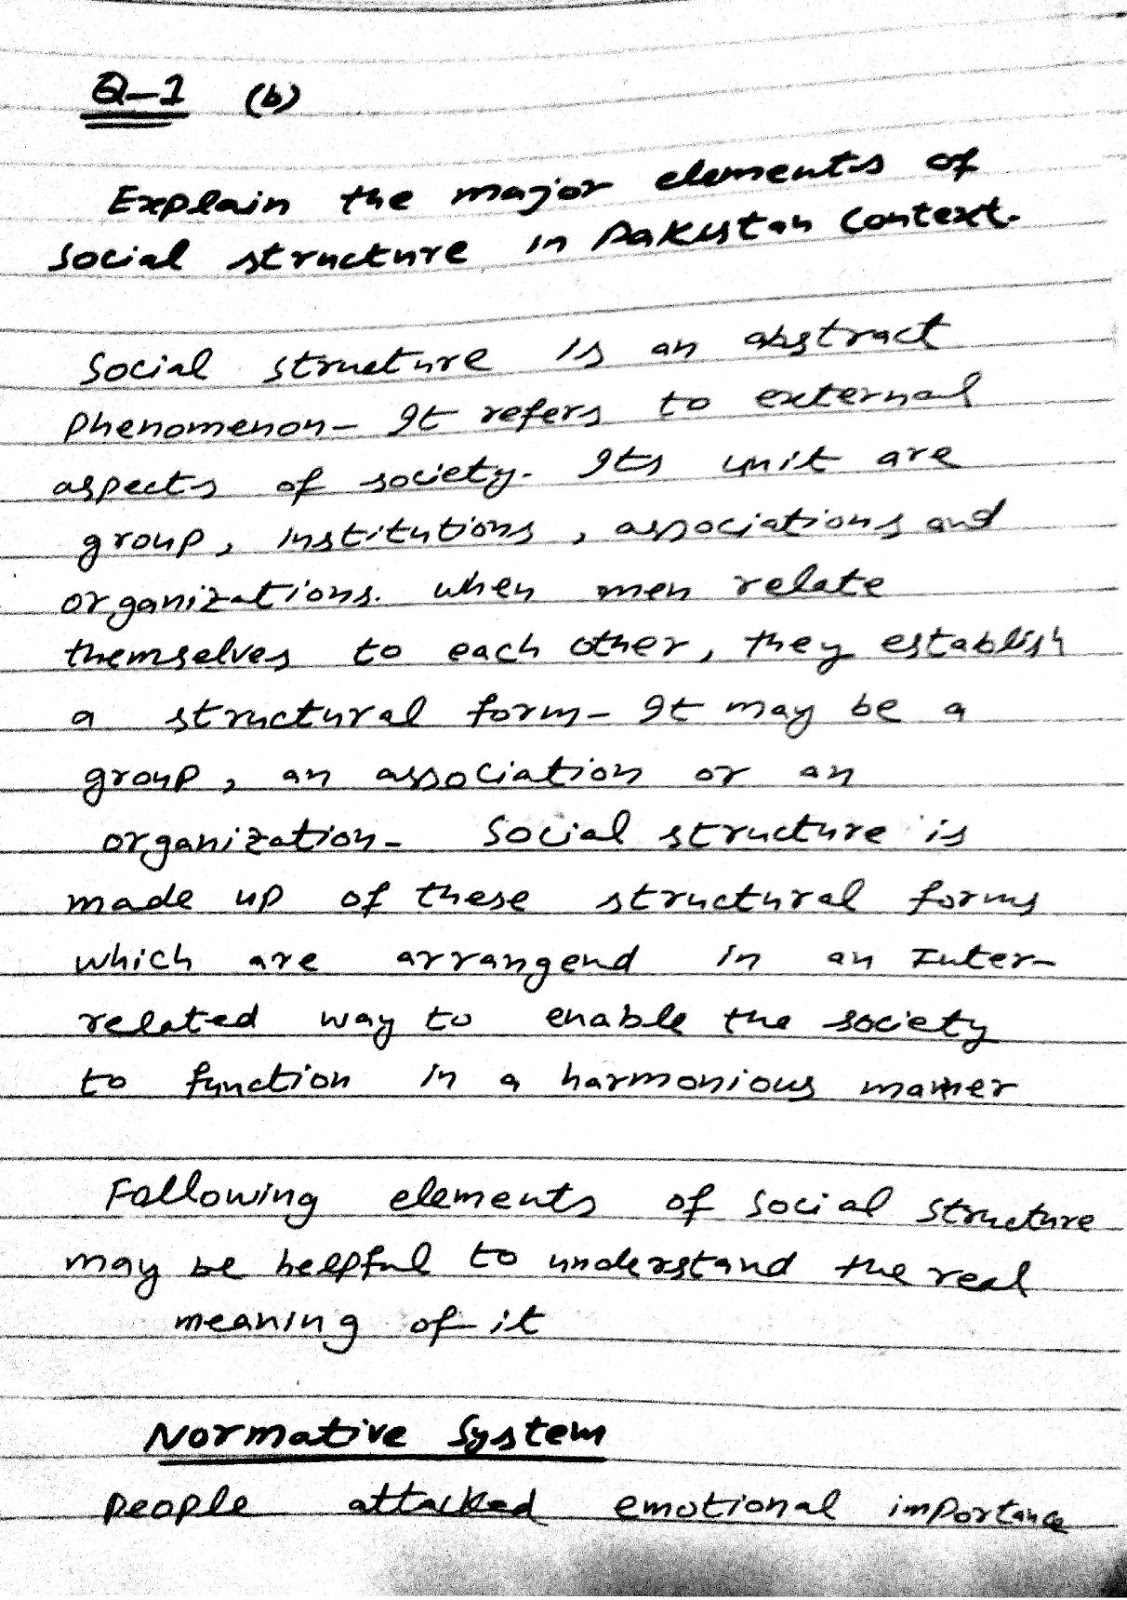 Q-1 (b)
Explain the major elements of
Social structure in Pakistan Context.
Social structure is an abstract
Phenomenon- It refers to external
aspects of society. Its unit are
group, institutions, associations and
organizations. when men relate
themselves to each other, they establish
a structural form- It may be a
group, an association or an
organization- Social structure is
made up of these structural forms
which are arrangend in an Inter-
related way to enable the society
to function in a harmonious manner
Following elements of social structure
may be helpful to understand the real
meaning of it
Normative System
people attacked emotional importance